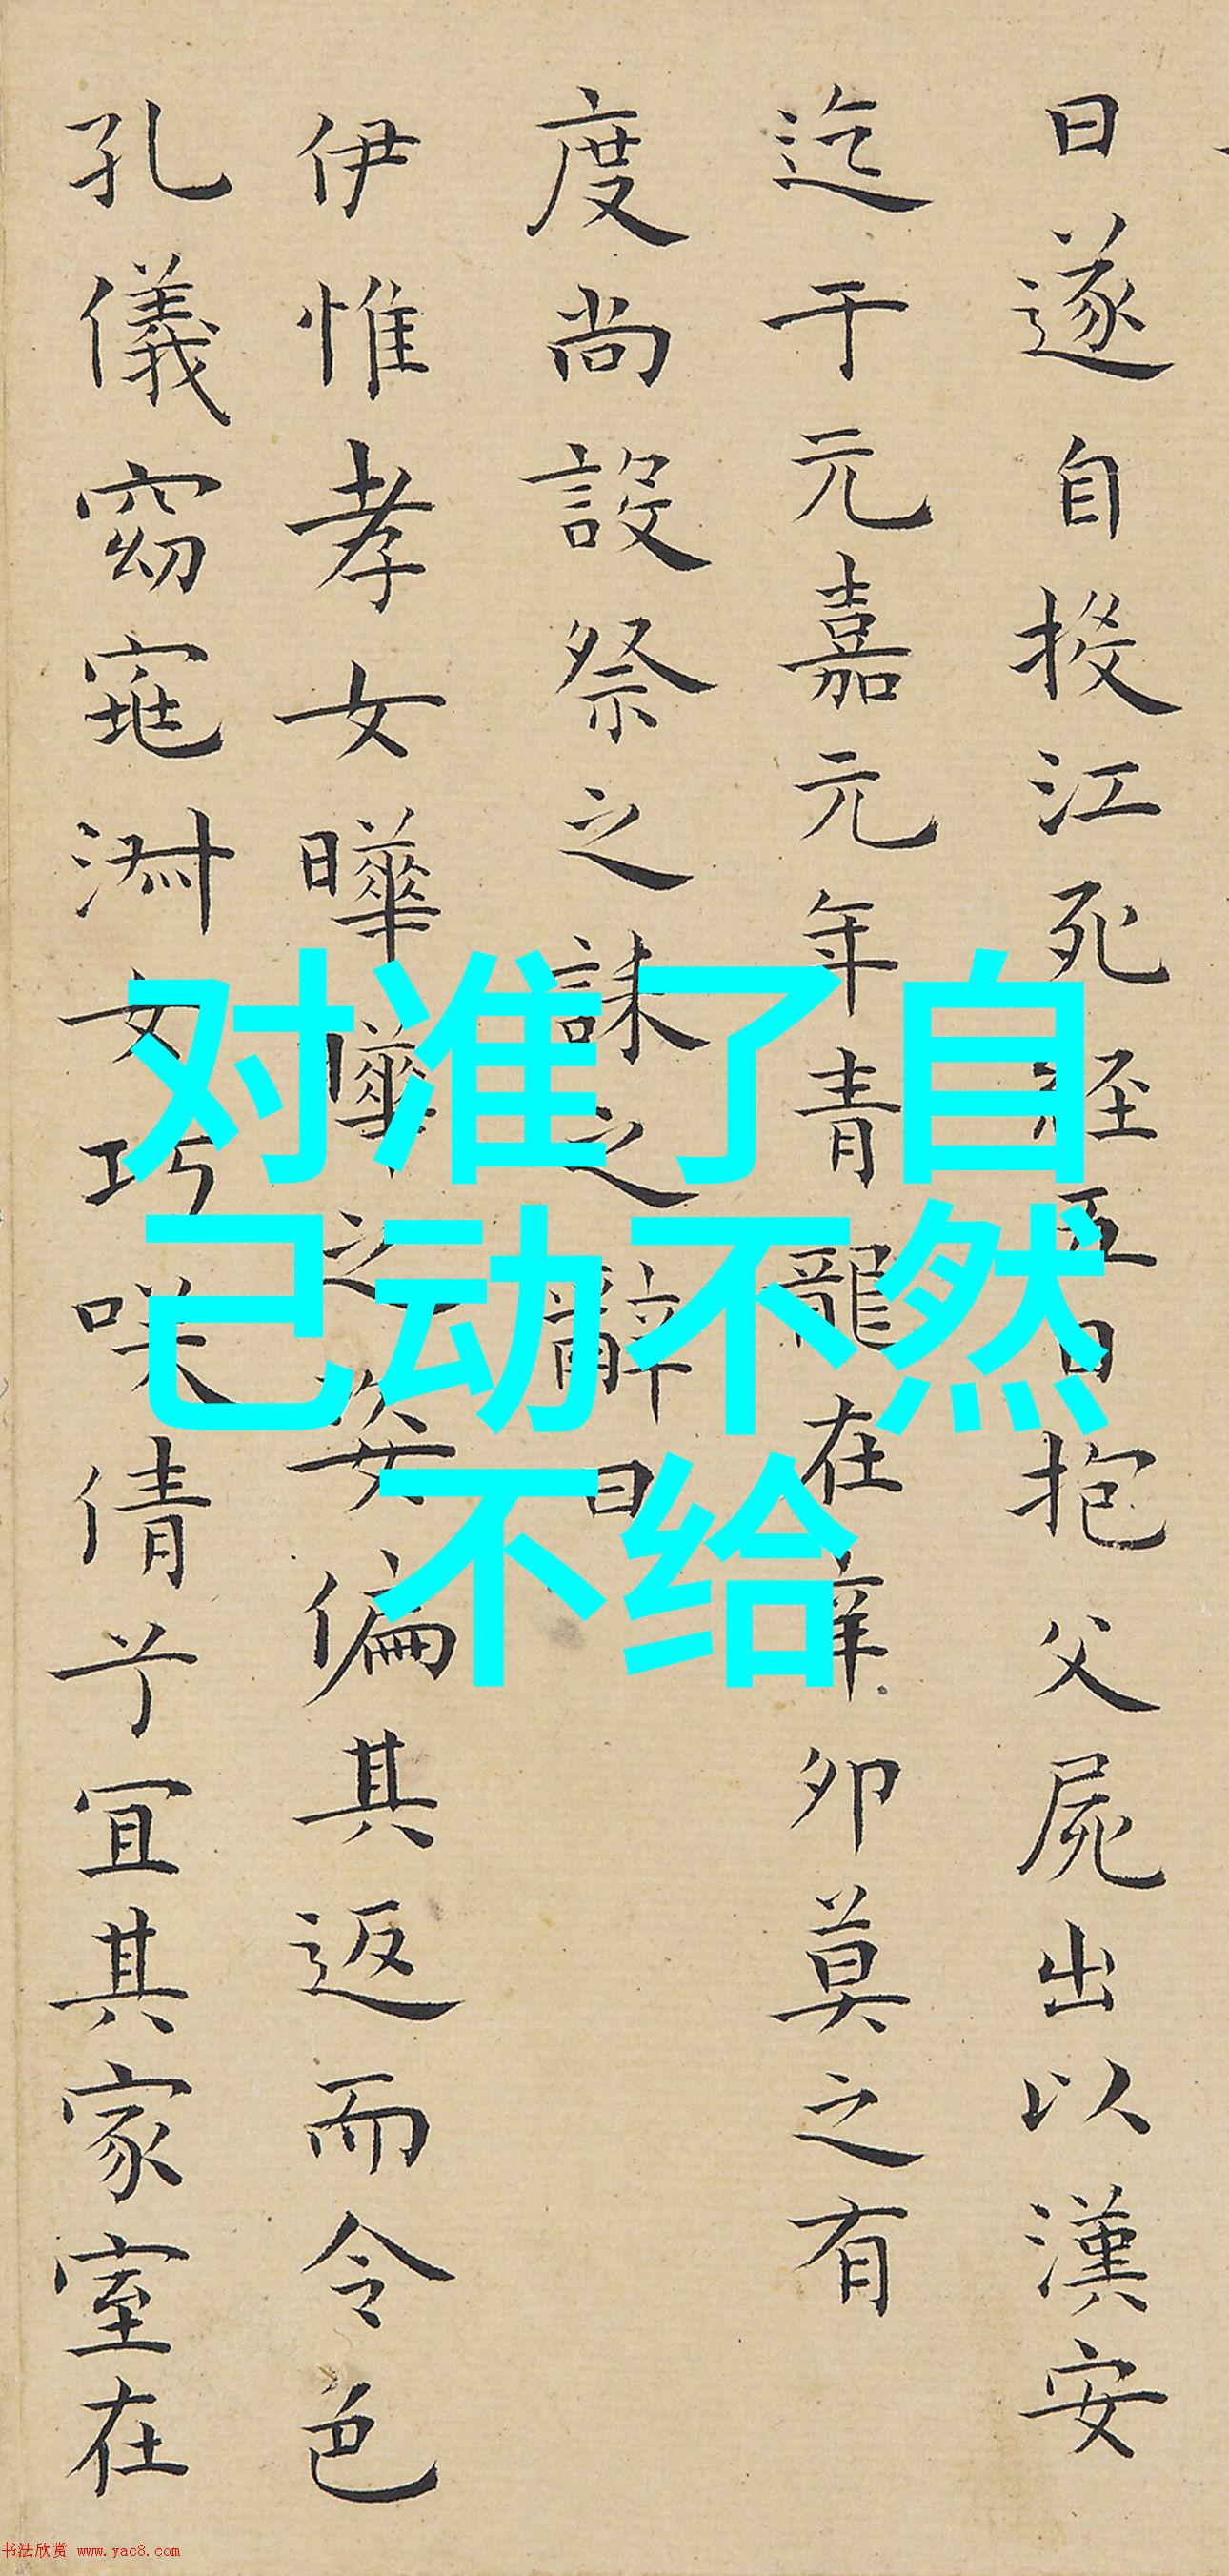 日遂自投江死經五日抱父屍出以漢安
迄于元嘉元年青龍在辛卯莫之有
度尚設祭之誄之辭曰
伊惟孝女曄曄之姿偏其返而令色
孔儀窈窕淑女巧咲倩兮宜其家室在
对准了自
己动不然
不给
书法欣赏 www.yac8.com